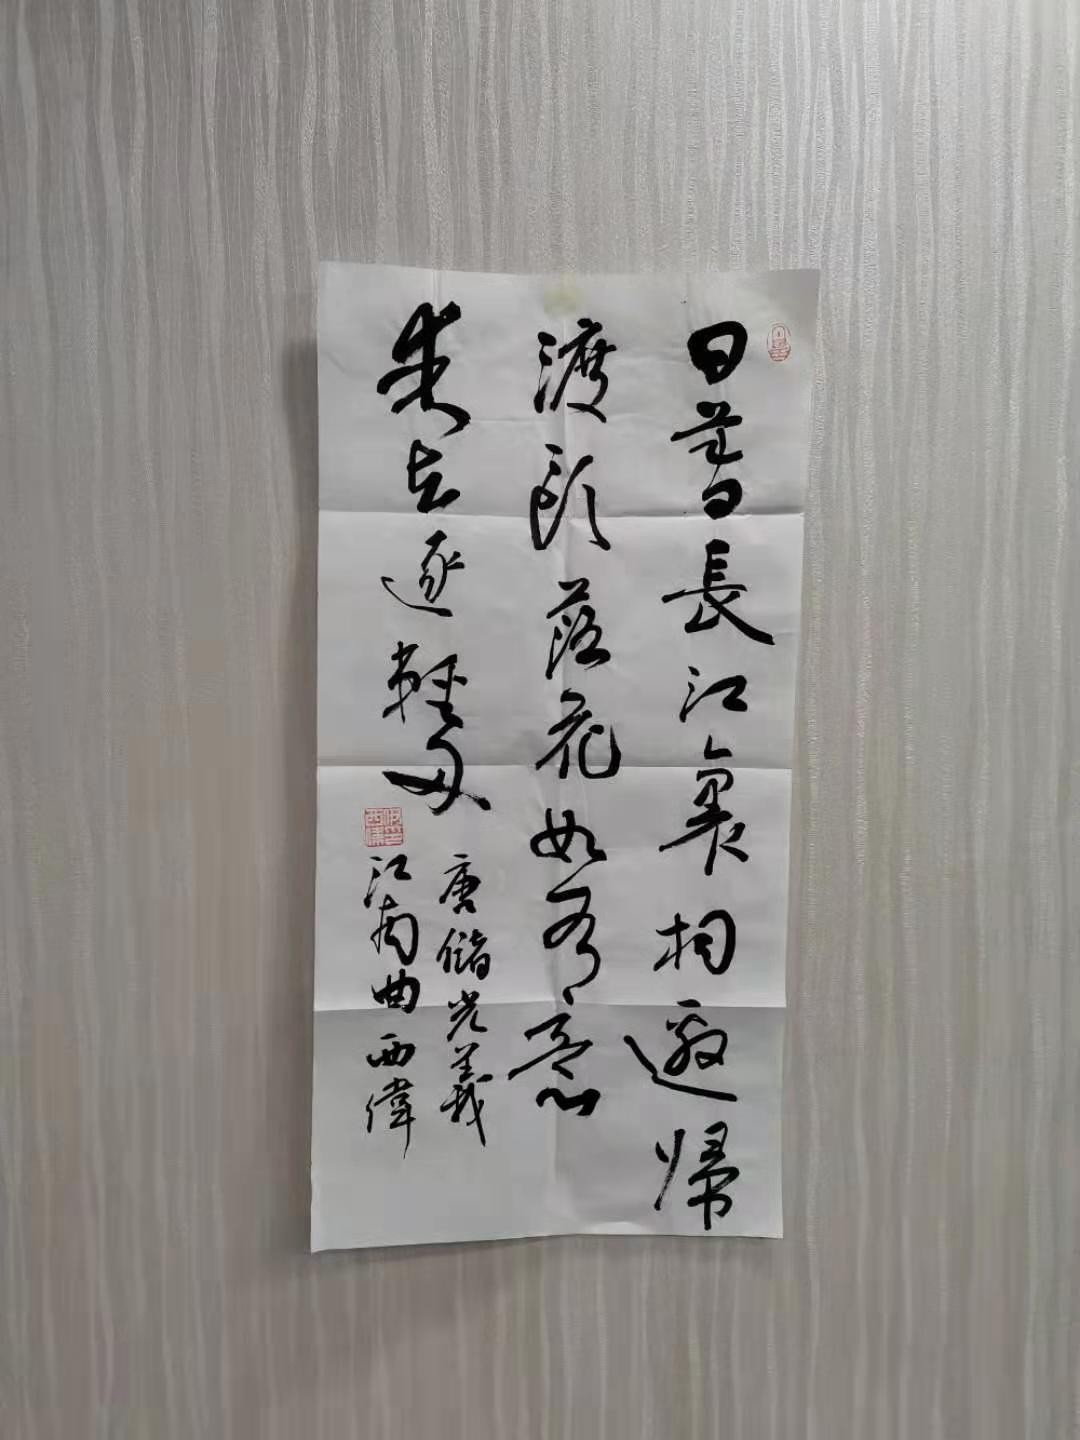 日暮長江裏相邀歸
渡頭落花如有意
來去逐輕舟
唐儲光羲
江南曲西偉